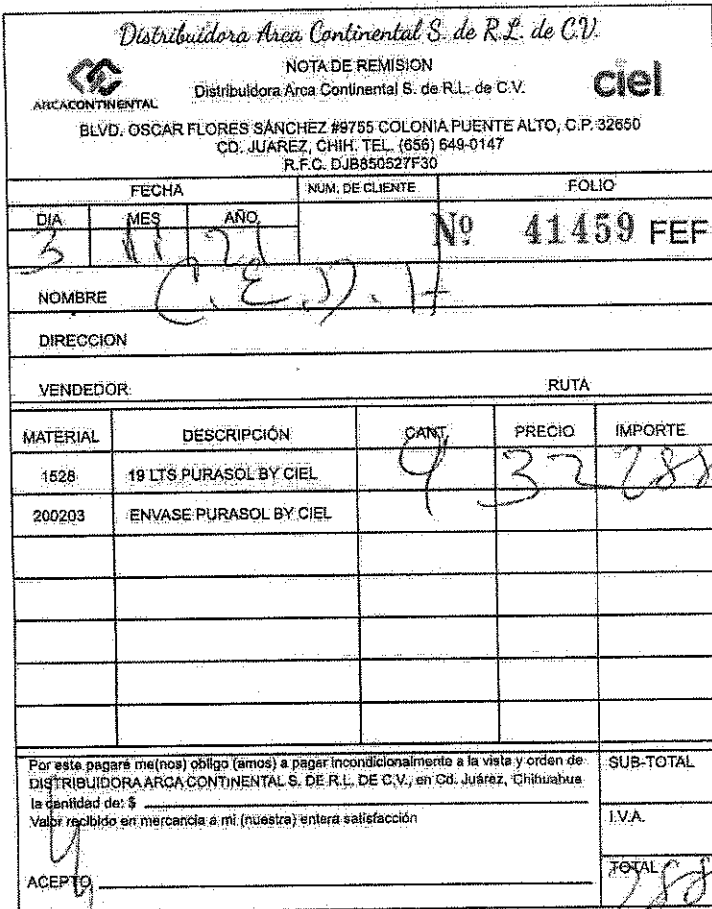 Distribuidora Arca Continental S. de R.L. de C.V.
NOTA DE REMISION
ARCACONTINENTAL
Distribuidora Arca Continental S. de R.L. de C.V.
ciel
BLVD. OSCAR FLORES SÁNCHEZ #9755 COLONIA PUENTE ALTO, C.P. 32650
CD. JUAREZ, CHIH. TEL. (656) 649-0147
R.F.C. DJB850527F30
FECHA NUM. DE CLIENTE FOLIO
DIA MES AÑO
3 11 21 Nº 41459 FEF
NOMBRE C.E.D.H
DIRECCION
VENDEDOR: RUTA
MATERIAL DESCRIPCIÓN CANT. PRECIO IMPORTE
1528 19 LTS PURASOL BY CIEL 9 32 288
200203 ENVASE PURASOL BY CIEL
Por este pagaré me(nos) obligo (amos) a pagar incondicionalmente a la vista y orden de
DISTRIBUIDORA ARCA CONTINENTAL S. DE R.L. DE C.V., en Cd. Juárez, Chihuahua
la cantidad de: $
Valor recibido en mercancia a mi (nuestra) entera satisfacción
SUB-TOTAL
I.V.A.
ACEPTO
TOTAL 288